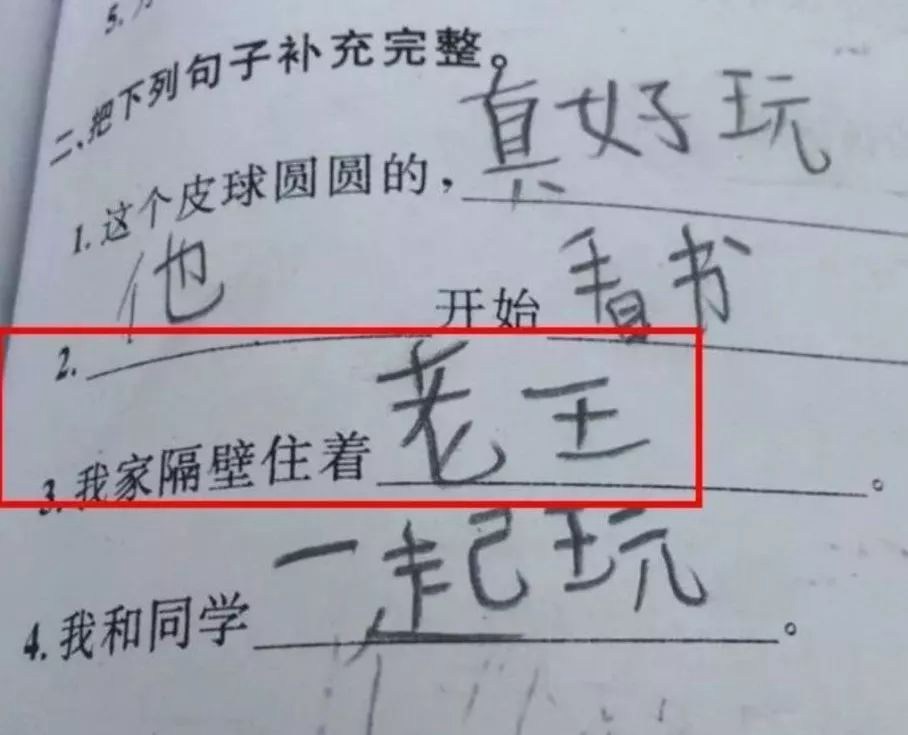 5.
二、把下列句子补充完整。
1.这个皮球圆圆的，真好玩
2.他开始看书
3.我家隔壁住着老王。
4.我和同学一起玩。